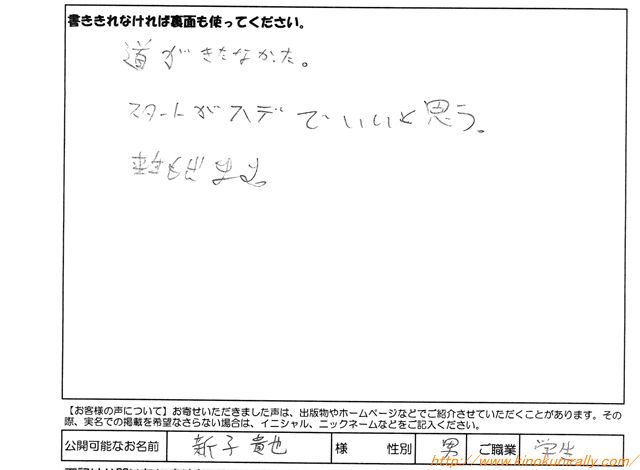 書ききれなければ裏面も使ってください。
道がきたなかた。
スタートがスデでいいと思う。
ます
【お客様の声について】お寄せいただきました声は、出版物やホームページなどでご紹介させていただくことがあります。その
際、実名での掲載を希望なさらない場合は、イニシャル、ニックネームなどをご記入ください。
公開可能なお名前 新子 貴也 様 性別 男 ご職業 学生
http://www.kinokunirally.com/